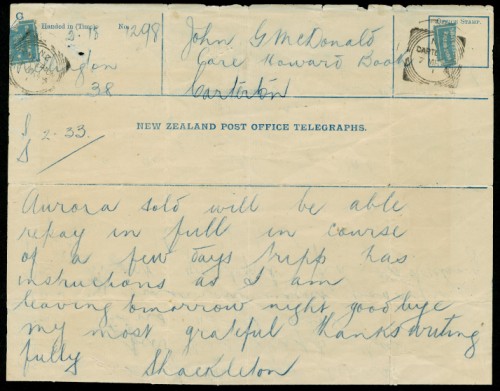 G
Handed in
No. 298
John G McDonald
Care Howard Booth
Carterton
38
2.33.
NEW ZEALAND POST OFFICE TELEGRAPHS.
Aurora sold will be able
repay in full in course
of a few days tripp has
instructions as I am
leaving tomorrow night goodbye
my most grateful thanks writing
fully Shackleton